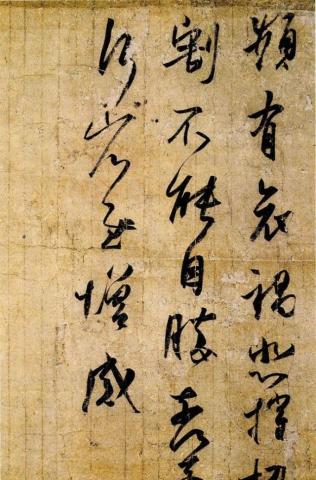 頻有哀禍悲摧
割不能自勝奈何
何省慰增感